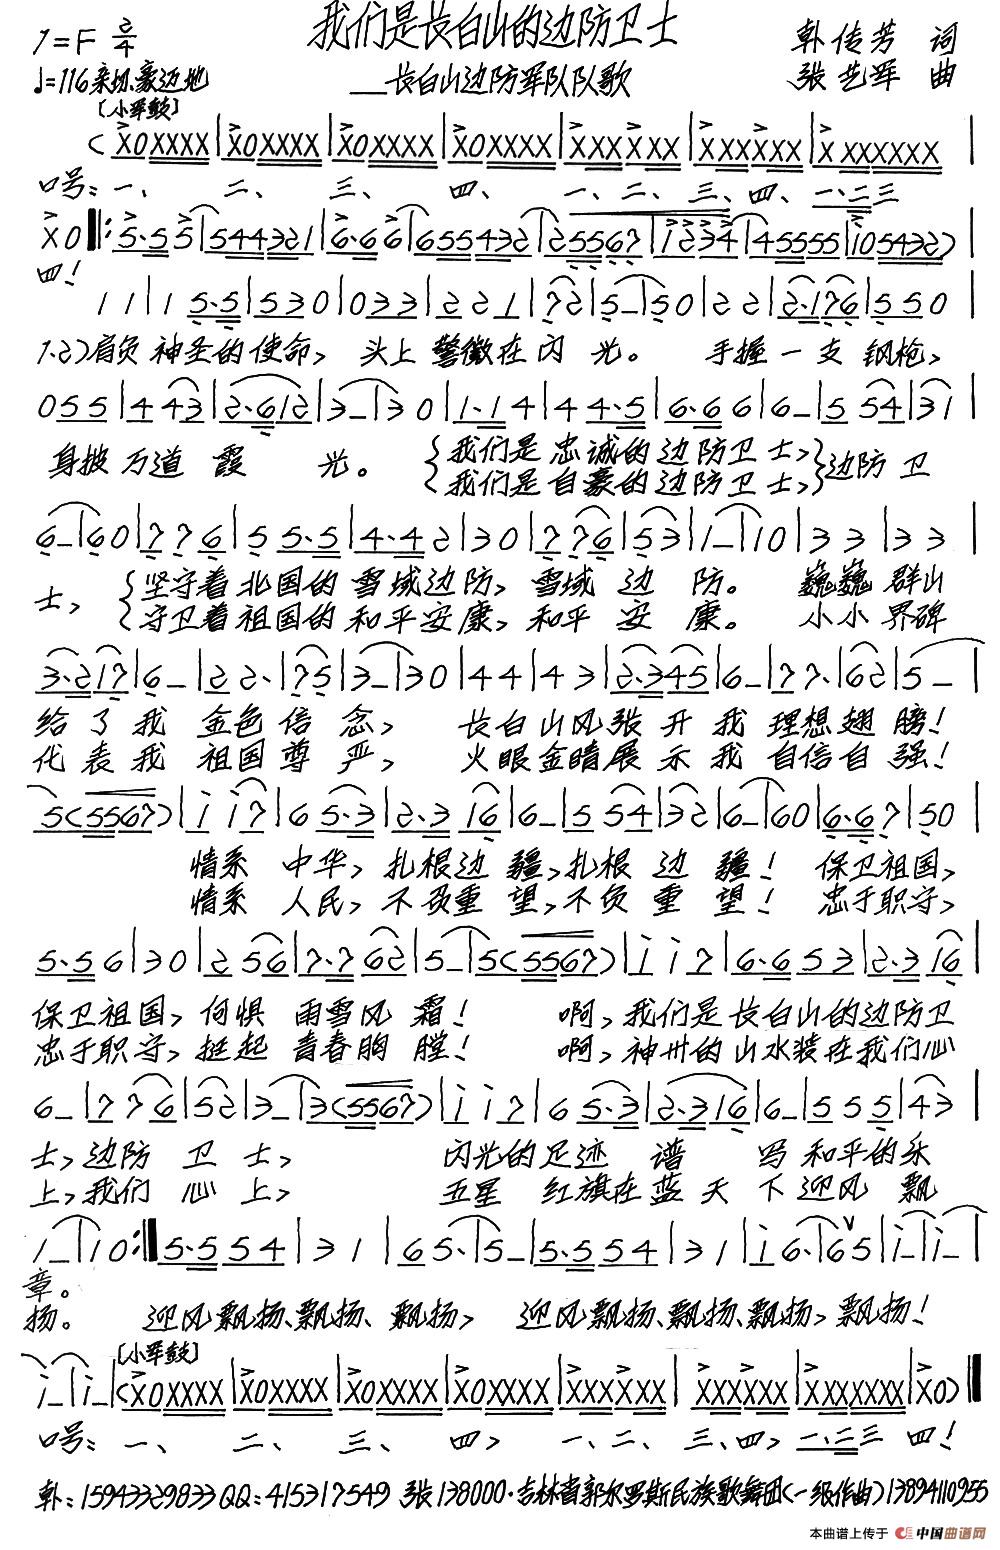 我们是长白山的边防卫士
1=F 2/4
韩传芳 词
♩=116 亲切、豪迈地
——长白山边防军队队歌
张艺军 曲
〔小军鼓〕
(X0XXXX|X0XXXX|X0XXXX|X0XXXX|XXXXXX|XXXXXX|X XXXXXX|
口号: 一、 二、 三、 四、 一、二、三、四、一、二三
X0‖:5·5 5|544321|6·6 6|6554332|25567|1234|45555|105432)
四!
1 1|1 5·5|530|033|2 21|72|5–|50|22|2·176|550|
1.2)肩负 神圣的使命, 头上 警徽在闪 光。 手握 一 支 钢枪,
055|443|2·612|3–|30|1·14|44·5|6·66|6–|554|31|
身披 万道 霞 光。 {我们是 忠诚的边防卫 士,}边防 卫
{我们是自豪的边防卫士,}
6–|60|776|55·5|4·42|30|776|53|1–|10|33|33|
士, {坚守着 北国的 雪域边防, 雪域 边 防。 巍巍 群山
{守卫着祖国的和平安康, 和平 安 康。 小小 界碑
3·217|6–|22·|75|3–|30|44|43|2·345|6–|77·|62|5–|
给 了 我 金色 信 念, 长白 山风张 开 我 理想翅 膀!
代 表 我 祖国 尊 严, 火眼金睛展 示 我 自信自 强!
5(5567)|i i7|65·3|2·316|6–|554|32|6–|60|6·67|50|
情系 中华, 扎根边 疆,扎根 边 疆! 保卫祖国,
情系 人民, 不负重 望,不负 重 望! 忠于职守,
5·56|30|256|7·762|5–|5(5567)|i i7|6·653|2·316|
保卫祖国, 何惧 雨雪风 霜! 啊, 我们是 长白山的边防卫
忠于职守, 挺起 青春胸 膛! 啊, 神州的 山水装在我们心
6–|776|52|3–|3(5567)|i i7|65·3|2·316|6–|555|43|
士, 边防 卫 士, 闪光的足迹 谱 写 和平的乐
上,我们 心 上, 五星 红旗在蓝 天 下 迎风 飘
1–|10:‖5·554|31|65·|5–|5·554|31|i6·|65|i–|i–|
章。
扬。 迎风飘扬、飘扬、 飘扬, 迎风飘扬、飘扬、飘扬, 飘扬!
〔小军鼓〕
i–|i–|(X0XXXX|X0XXXX|X0XXXX|X0XXXX|XXXXXX|XXXXXX|XXXXXXX|X0)‖
口号: 一、 二、 三、 四, 一、二、 三、四, 一、二三 四!
韩:15943329833 QQ:415317549 张138000·吉林省郭尔罗斯民族歌舞团(一级作曲)13894110955
本曲谱上传于 中国曲谱网